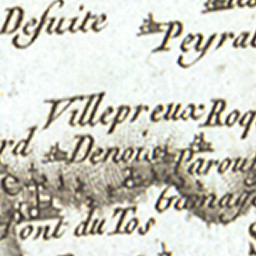 Desuite
Peyra
Villepreux Roq
rd Denois Parou
Gamag
Pont du Tos